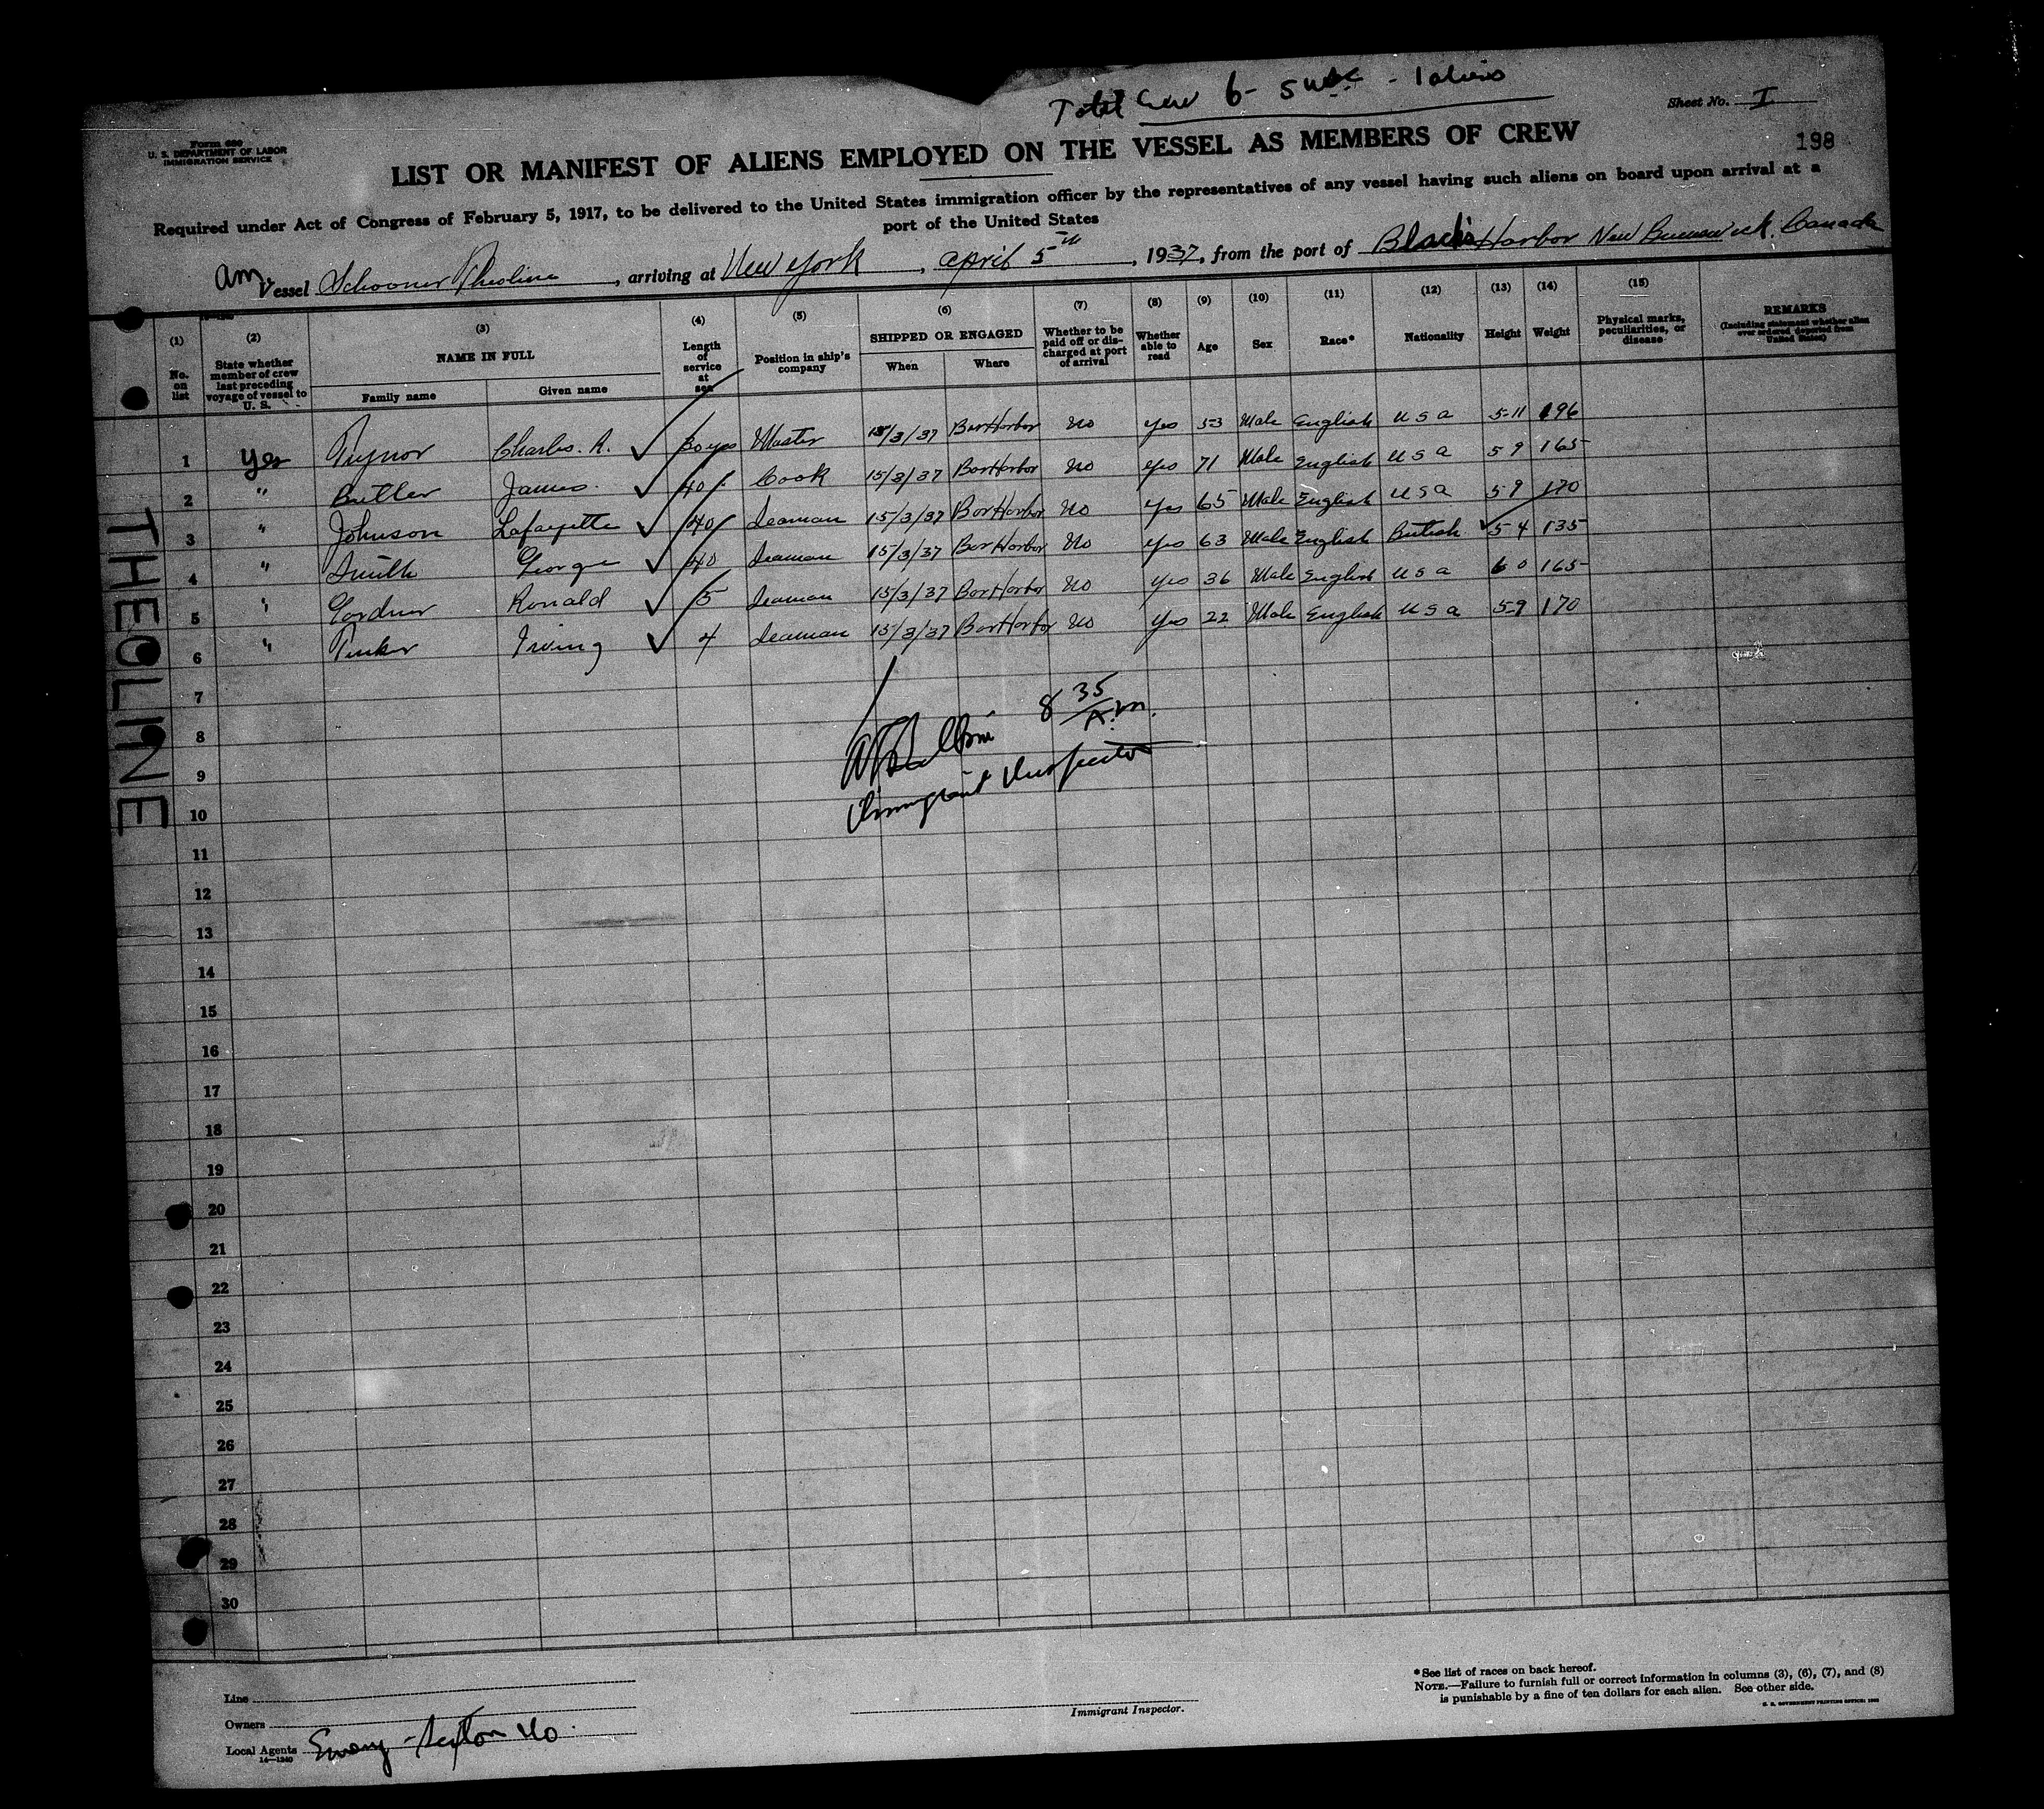 Total Crew 6 - 5 - 1 aliens
Sheet No. I
Form 680
U. S. DEPARTMENT OF LABOR
IMMIGRATION SERVICE
198
LIST OR MANIFEST OF ALIENS EMPLOYED ON THE VESSEL AS MEMBERS OF CREW
Required under Act of Congress of February 5, 1917, to be delivered to the United States immigration officer by the representatives of any vessel having such aliens on board upon arrival at a
port of the United States
Am Vessel Schooner Theoline, arriving at New York, April 5th, 1937, from the port of Blacks Harbor New Brunswick, Canada
(1) (2) (3) (4) (5) (6) (7) (8) (9) (10) (11) (12) (13) (14) (15) REMARKS
No. on list
State whether member of crew last preceding voyage of vessel to U. S.
NAME IN FULL
Family name Given name
Length of service at sea
Position in ship's company
SHIPPED OR ENGAGED
When Where
Whether to be paid off or discharged at port of arrival
Whether able to read
Age Sex Race* Nationality Height Weight
Physical marks, peculiarities, or disease
(Including statement whether alien ever ordered deported from United States)
1 Yes Charles. A. ✓ 30 yrs Master 15/3/37 Bar Harbor No Yes 53 Male English U S A 5-11 196
2 " Butler James. ✓ 40 Cook 15/3/37 Bar Harbor No Yes 71 Male English U S A 5 9 165
3 " Johnson Lafayette ✓ 40 Seaman 15/3/37 Bar Harbor No Yes 65 Male English U S A 5 9 170
4 " Smith George ✓ 40 Seaman 15/3/37 Bar Harbor No Yes 63 Male English British ✓ 5 4 135
5 " Gordner Ronald ✓ 5 Seaman 15/3/37 Bar Harbor No Yes 36 Male English U S A 6 0 165
6 " Tinker Irving ✓ 4 Seaman 15/3/37 Bar Harbor No Yes 22 Male English U S A 5-9 170
THEOLINE
7
8 8 35 A.M.
9
10 Immigrant Inspector
11
12
13
14
15
16
17
18
19
20
21
22
23
24
25
26
27
28
29
30
Line
Owners
Local Agents Sexton Co.
14—1240
Immigrant Inspector.
*See list of races on back hereof.
NOTE.—Failure to furnish full or correct information in columns (3), (6), (7), and (8)
is punishable by a fine of ten dollars for each alien. See other side.